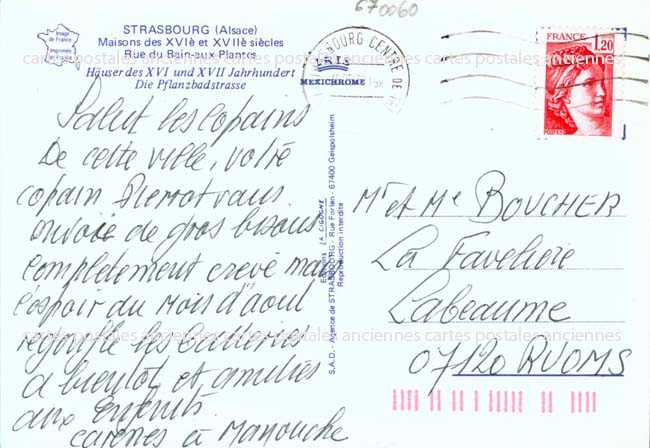 670060
Image de France
Imprimée de France
STRASBOURG (Alsace)
Maisons des XVIè et XVIIè siècles
Rue du Bain-aux-Plantes
Häuser des XVI und XVII Jahrhundert
Die Pflanzbadstrasse
MEXICHROME
STRASBOURG CENTRE DE TRI
FRANCE
1,20
POSTES
cartes postales anciennes cartes postales anciennes cartes postales anciennes
Salut les copains
De cette ville, votre
copain Pierrot vous
envoie de gros bisous
completement crevé mais
l'espoir du mois d'août
regonfle les batteries
a bientot et amitiés
aux Enfants
caresses à Manouche
Editions LA CIGOGNE
S.A.D. - Agence de STRASBOURG - Rue Forlen - 67400 Geispolsheim
Reproduction interdite
Mr et Me BOUCHER
La Faveliere
Labeaume
07120 RUOMS
cartes postales anciennes cartes postales anciennes cartes postales anciennes